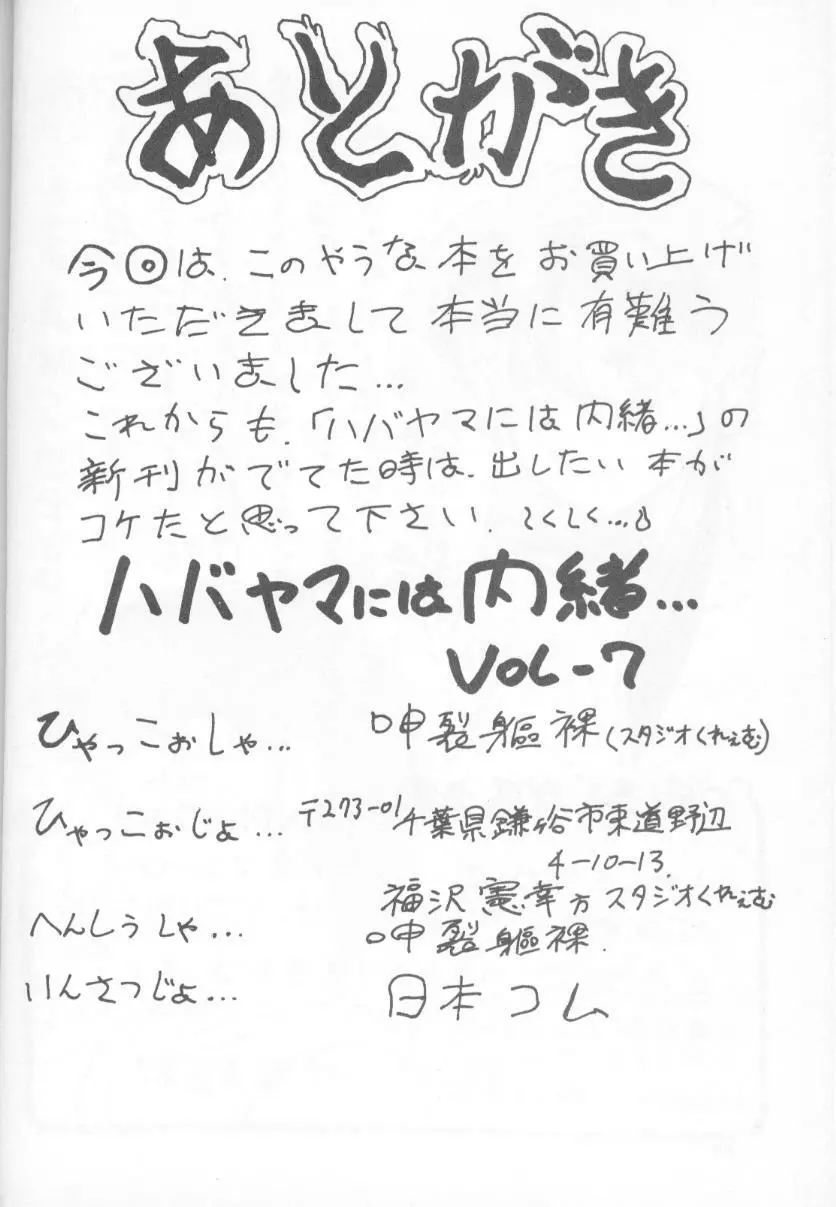 あとがき
今回は、このやうな本をお買い上げ
いただきまして本当に有難う
ございました…
これからも、「ハバヤマには内緒…」の
新刊がでてた時は、出したい本が
コケたと思って下さい、しくしく…
ハバヤマには内緒…
VOL-7
ひゃっこぉしゃ… 呻裂躯裸(スタジオくれぇむ)
ひゃっこぉじょ… 〒273-01千葉県鎌ヶ谷市東道野辺
4-10-13.
福沢憲幸方スタジオくれぇむ
へんしうしゃ… 呻裂躯裸.
いんさつじょ… 日本コム